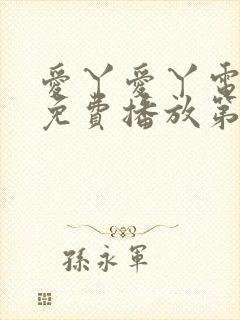 愛丫愛丫電
免費播放第
孫永軍